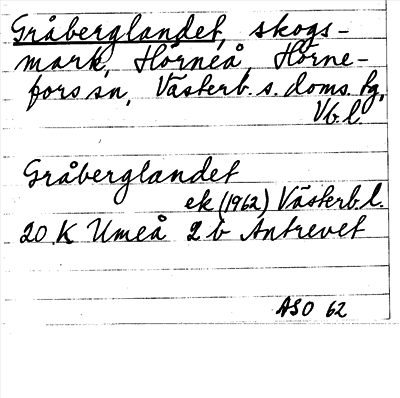 Gråberglandet, skogs-
mark, Hörneå, Hörne-
fors sn, Västerb. s. doms. hg,
Vb. l.
Gråberglandet
ek (1962) Västerb. l.
20 K Umeå 2 b Antrevet
ASO 62